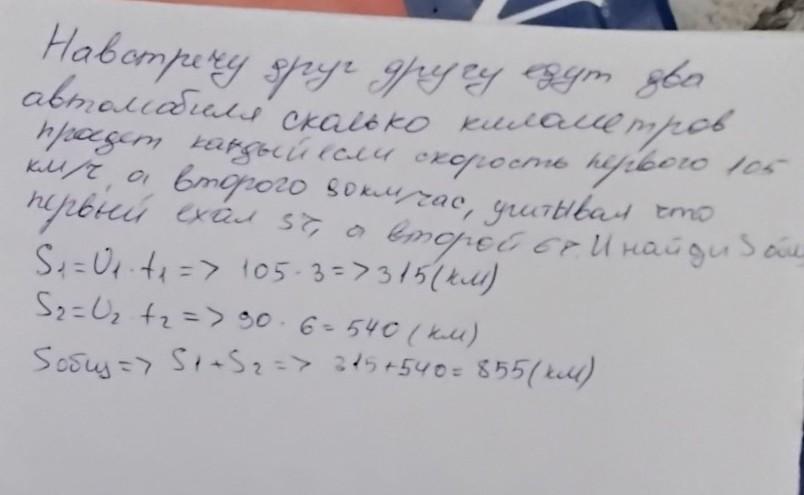 Навстречу друг другу едут два
автомобиля сколько километров
проедет каждый если скорость первого 105
км/ч, а второго 90км/час, учитывая что
первый ехал 3ч, а второй 6ч. И найди S общ
S1=U1·t1=> 105·3=>315(км)
S2=U2·t2=> 90·6=540(км)
Sобщ=> S1+S2=> 315+540=855(км)